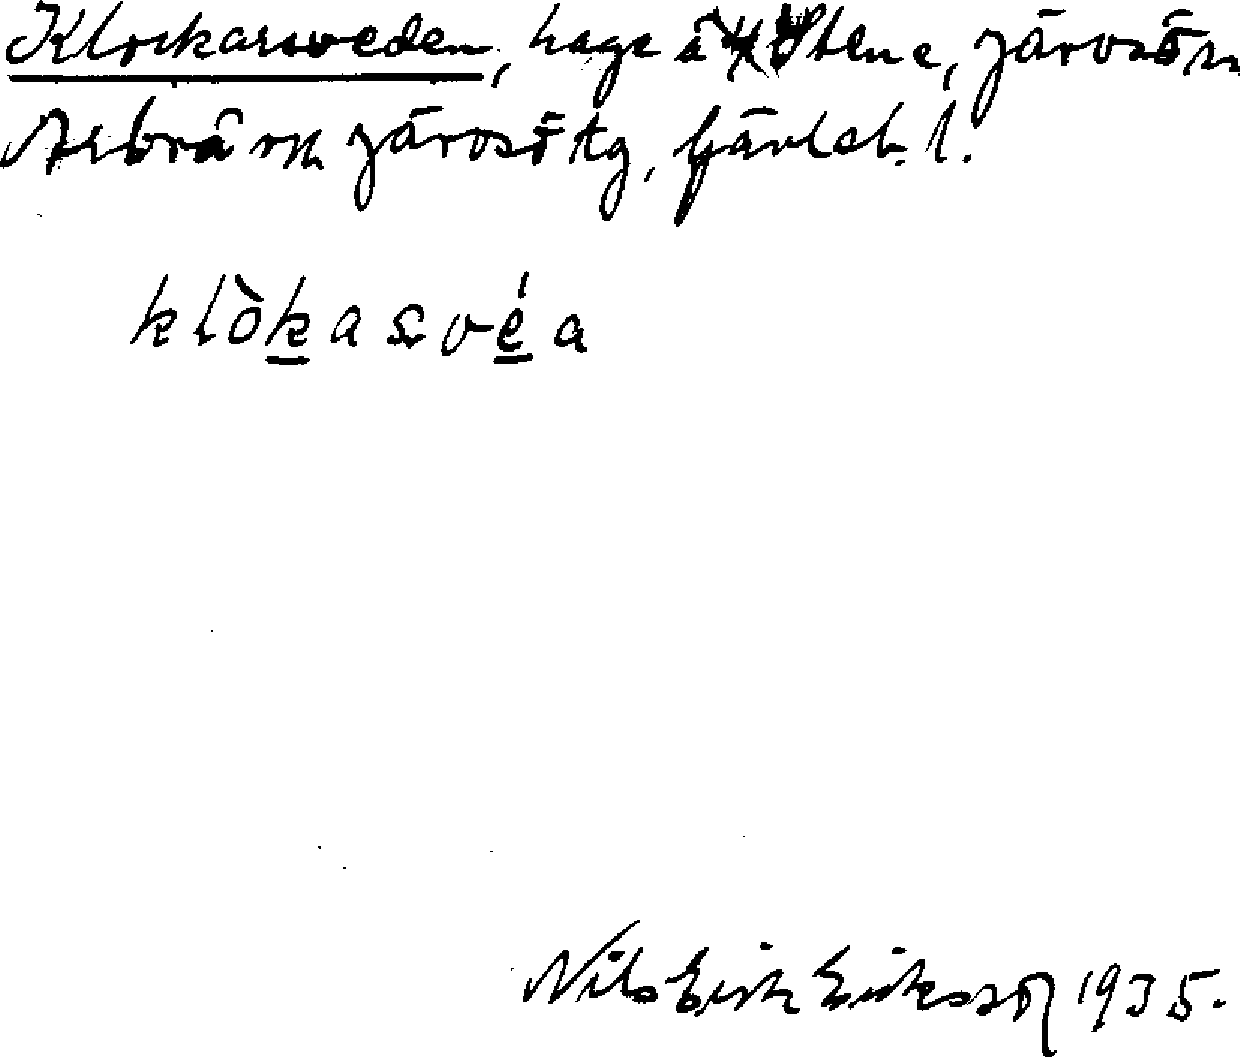 Klockarsveden, hage å Stene, Järvsö sn
Arbrå och Järvsö tg, Gävleb. l.
klòkasvéa
Nils Erik Eriksson 1935.